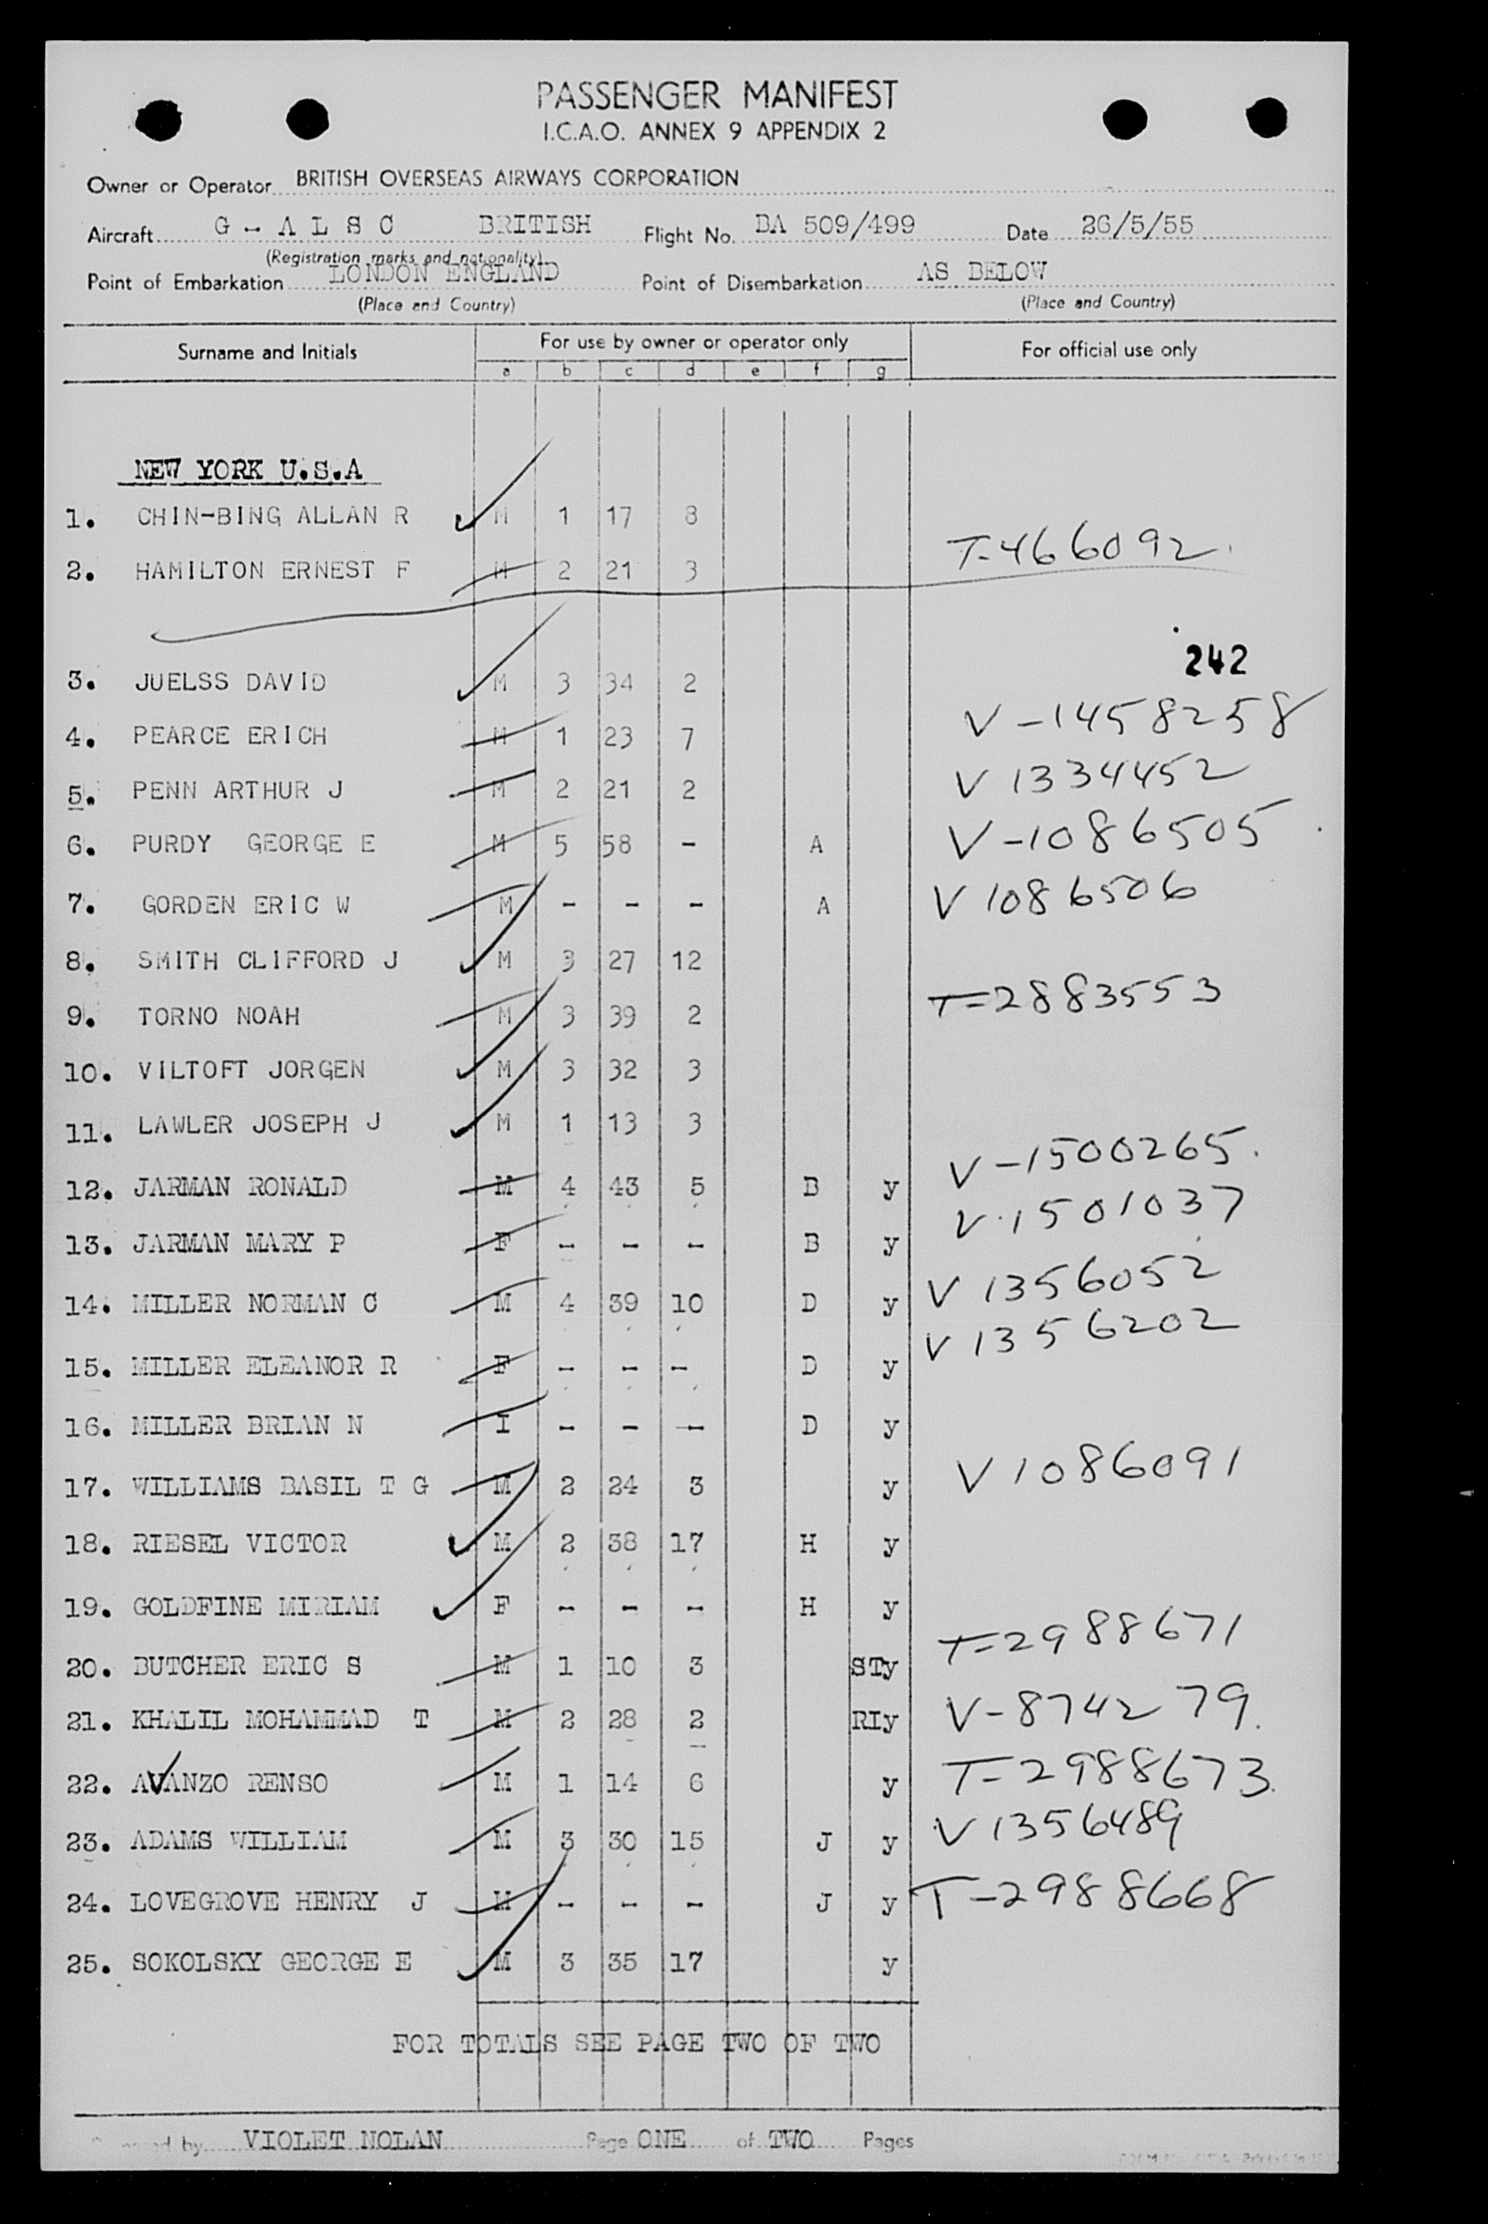 PASSENGER MANIFEST
I.C.A.O. ANNEX 9 APPENDIX 2
Owner or Operator BRITISH OVERSEAS AIRWAYS CORPORATION
Aircraft G - A L S C BRITISH Flight No. BA 509/499 Date 26/5/55
(Registration marks and nationality)
Point of Embarkation LONDON ENGLAND Point of Disembarkation AS BELOW
(Place and Country) (Place and Country)
Surname and Initials For use by owner or operator only For official use only
a b c d e f g
NEW YORK U.S.A
1. CHIN-BING ALLAN R M 1 17 8
T-466092
2. HAMILTON ERNEST F M 2 21 3
242
3. JUELSS DAVID M 3 34 2
V-1458258
4. PEARCE ERICH M 1 23 7
V 1334452
5. PENN ARTHUR J M 2 21 2
V-1086505
6. PURDY GEORGE E M 5 58 - A
V 1086506
7. GORDEN ERIC W M - - - A
8. SMITH CLIFFORD J M 3 27 12
T=2883553
9. TORNO NOAH M 3 39 2
10. VILTOFT JORGEN M 3 32 3
11. LAWLER JOSEPH J M 1 13 3
V-1500265.
12. JARMAN RONALD M 4 43 5 B y
V.1501037
13. JARMAN MARY P F - - - B y
V 1356052
14. MILLER NORMAN C M 4 39 10 D y
V 1356202
15. MILLER ELEANOR R F - - - D y
16. MILLER BRIAN N I - - - D y
V 1086091
17. WILLIAMS BASIL T G M 2 24 3 y
18. RIESEL VICTOR M 2 38 17 H y
19. GOLDFINE MIRIAM F - - - H y
T=2988671
20. BUTCHER ERIC S M 1 10 3 STy
21. KHALIL MOHAMMAD T M 2 28 2 RIy V-874279.
22. AVANZO RENSO M 1 14 6 y T-2988673.
23. ADAMS WILLIAM M 3 30 15 J y V 1356489
24. LOVEGROVE HENRY J M - - - J y T-2988668
25. SOKOLSKY GEORGE E M 3 35 17 y
FOR TOTALS SEE PAGE TWO OF TWO
by VIOLET NOLAN Page ONE of TWO Pages